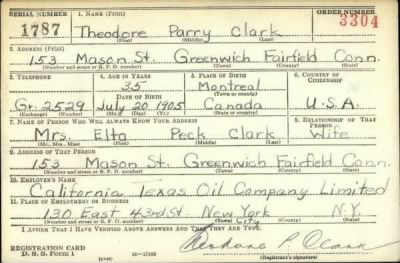 SERIAL NUMBER 1. NAME (Print) ORDER NUMBER
1787 Theodore Parry Clark 3304
(First) (Middle) (Last)
2. ADDRESS (Print)
153 Mason St. Greenwich Fairfield Conn.
(Number and street or R. F. D. number) (Town) (County) (State)
3. TELEPHONE 4. AGE IN YEARS 5. PLACE OF BIRTH 6. COUNTRY OF CITIZENSHIP
35 Montreal
DATE OF BIRTH (Town or county)
Gr. 2529 July 20 1905 Canada U.S.A.
(Exchange) (Number) (Mo.) (Day) (Yr.) (State or country)
7. NAME OF PERSON WHO WILL ALWAYS KNOW YOUR ADDRESS 8. RELATIONSHIP OF THAT PERSON
Mrs. Elta Peck Clark Wife
(Mr., Mrs., Miss) (First) (Middle) (Last)
9. ADDRESS OF THAT PERSON
153 Mason St. Greenwich Fairfield Conn.
(Number and street or R. F. D. number) (Town) (County) (State)
10. EMPLOYER'S NAME
California Texas Oil Company Limited
11. PLACE OF EMPLOYMENT OR BUSINESS
130 East 43rd St. New York City N.Y.
(Number and street or R. F. D. number) (Town) (County) (State)
I AFFIRM THAT I HAVE VERIFIED ABOVE ANSWERS AND THAT THEY ARE TRUE.
REGISTRATION CARD
D. S. S. Form 1 (over) Theodore P. Clark
(Registrant's signature)